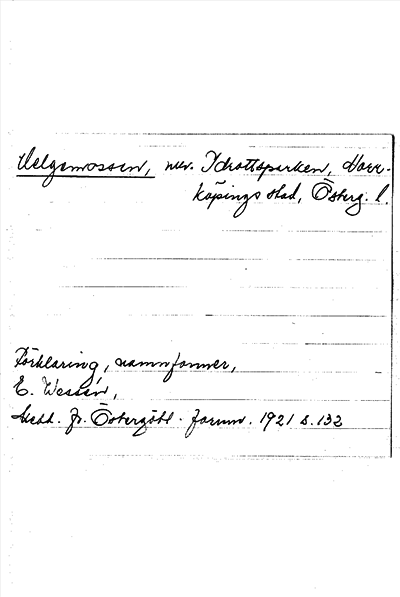 Helgemossen, nuv. Idrottsparken, Norr-
köpings stad, Österg. l.
Förklaring, namnformer,
E. Wessén,
Medd. fr. Östergötl. fornm. 1921 s. 132